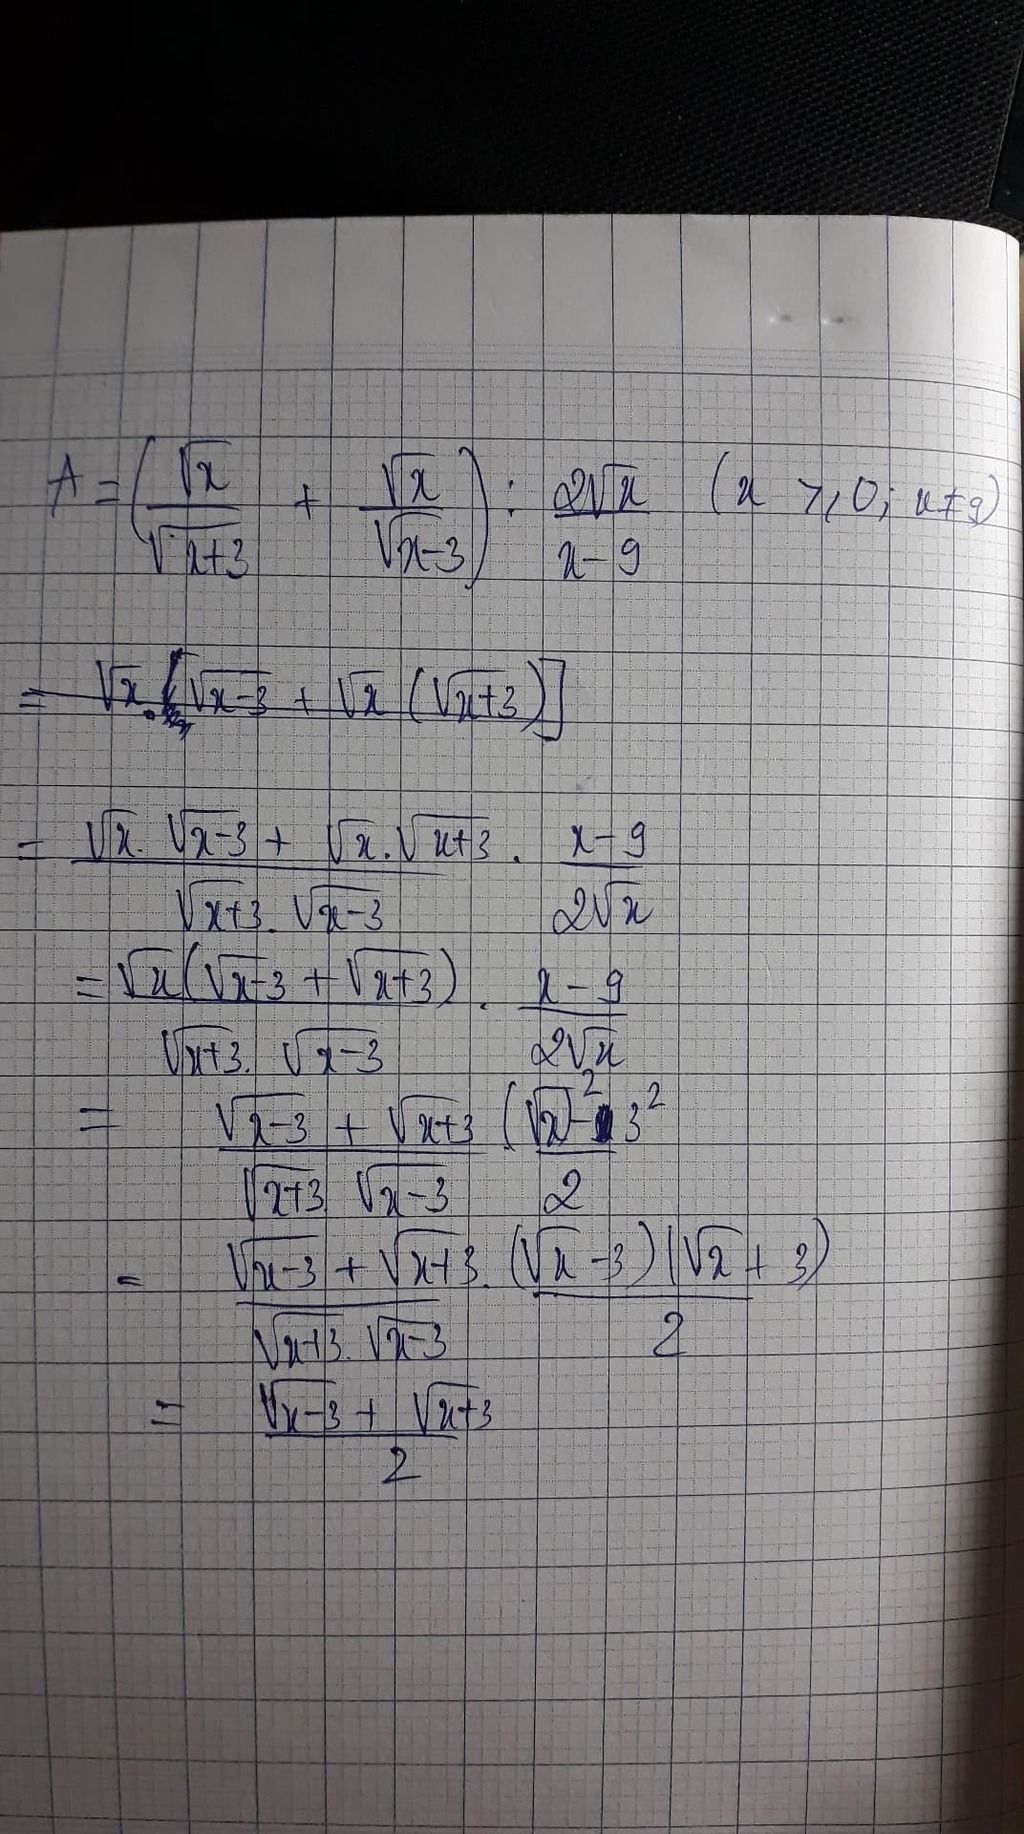 A = (√x/√(x+3) + √x/√(x-3)) : 2√x/(x-9) (x ≥ 0; x ≠ 9)
= √x.[√(x-3) + √x (√(x+3))]
= (√x.√(x-3) + √x.√(x+3))/(√(x+3).√(x-3)) . (x-9)/(2√x)
= √x(√(x-3) + √(x+3))/(√(x+3).√(x-3)) . (x-9)/(2√x)
= (√(x-3) + √(x+3))/(√(x+3) √(x-3)) ((√x)²-3²/2
= (√(x-3) + √(x+3))/(√(x+3).√(x-3)) . (√x-3)(√x+3)/2
= (√(x-3) + √(x+3))/2